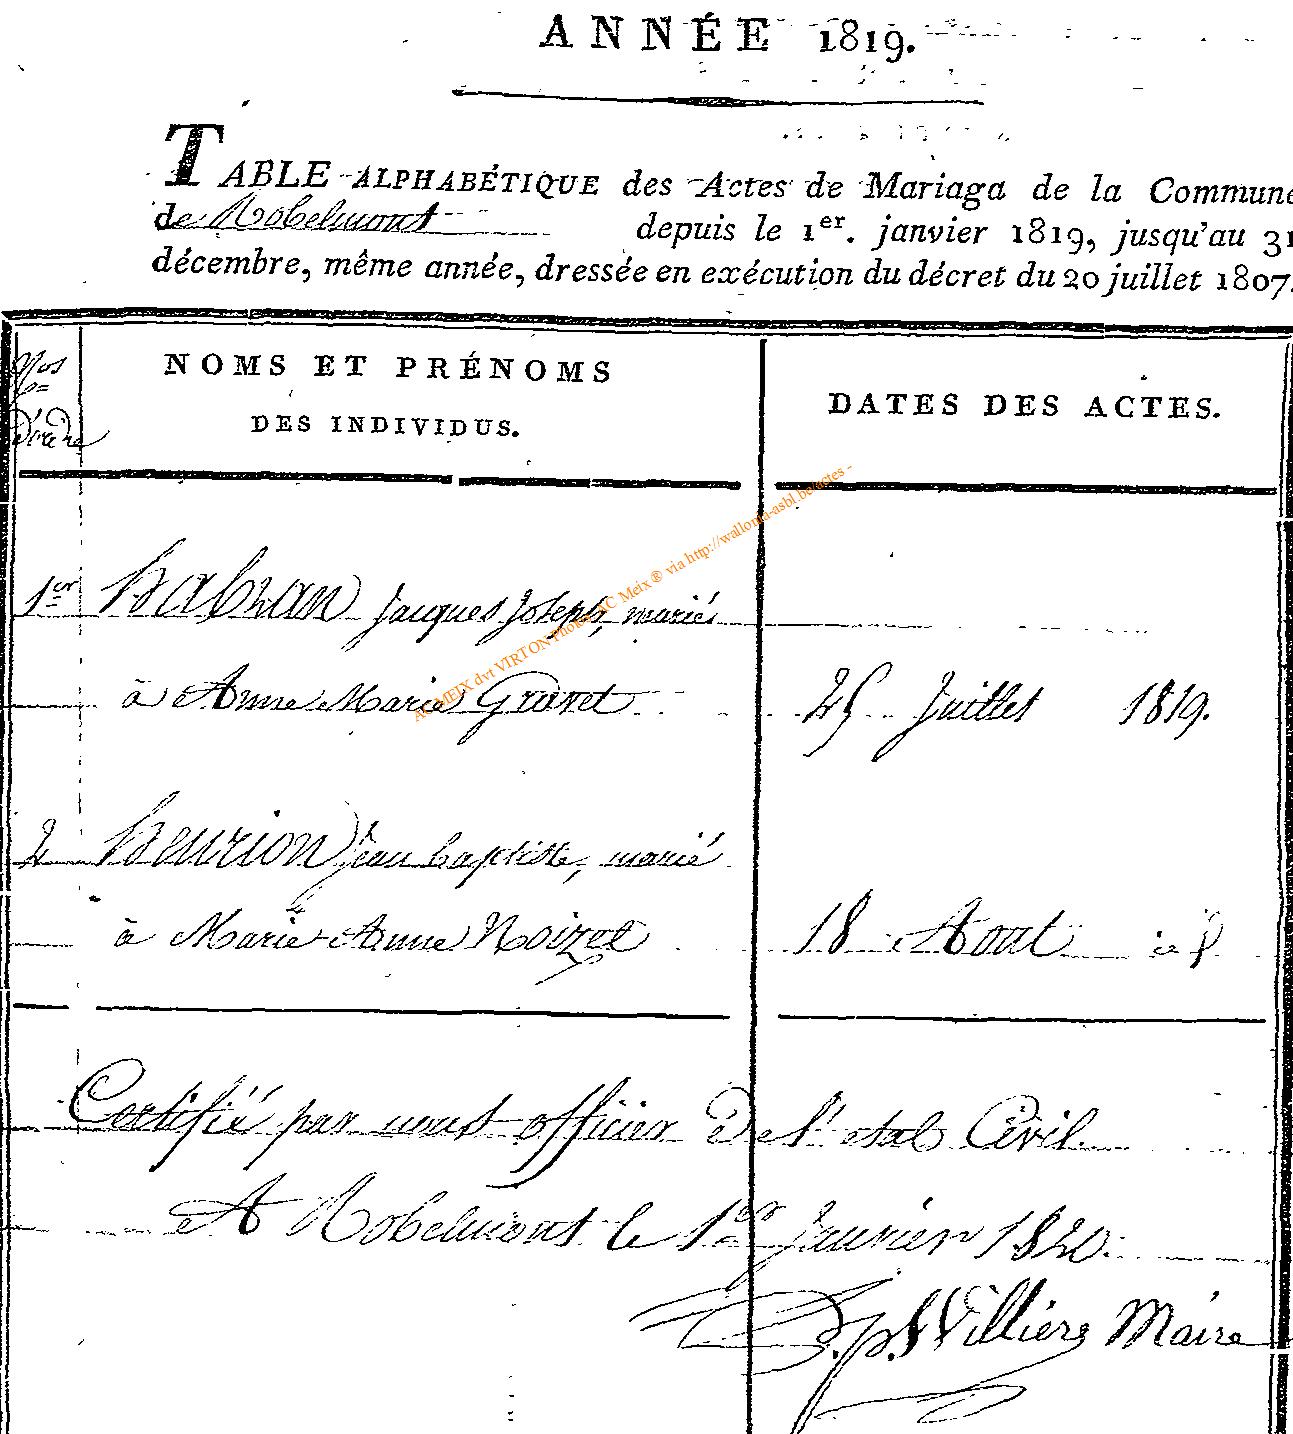 ANNÉE 1819.
TABLE ALPHABÉTIQUE des Actes de Mariaga de la Commune
de Robelmont depuis le 1er. janvier 1819, jusqu'au 31
décembre, même année, dressée en exécution du décret du 20 juillet 1807.
Nos
d'ordre
NOMS ET PRÉNOMS
DES INDIVIDUS.
DATES DES ACTES.
1er Habran Jacques Joseph, mariés
à Anne Marie Gravet 25 Juillet 1819.
2 Henrion Jean baptiste, marié
à Marie Anne Noizet 18 Aout
Certifié par nous officier de l'etat Civil
A Robelmont le 1er Janvier 1820.
Villière Maire
AC MEIX dvt VIRTON Photos AC Meix ® via http://wallonia-asbl.be/actes -